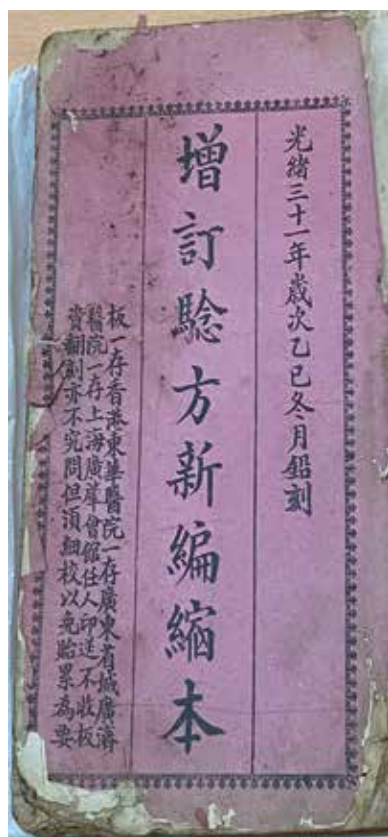 光緒三十一年歲次乙巳冬月鉛刻
增訂騐方新編縮本
板一存香港東華醫院一存廣東省城廣濟
醫院一存上海廣肇會館任人印送不收板
資翻刻亦不究問但須細校以免貽累為要